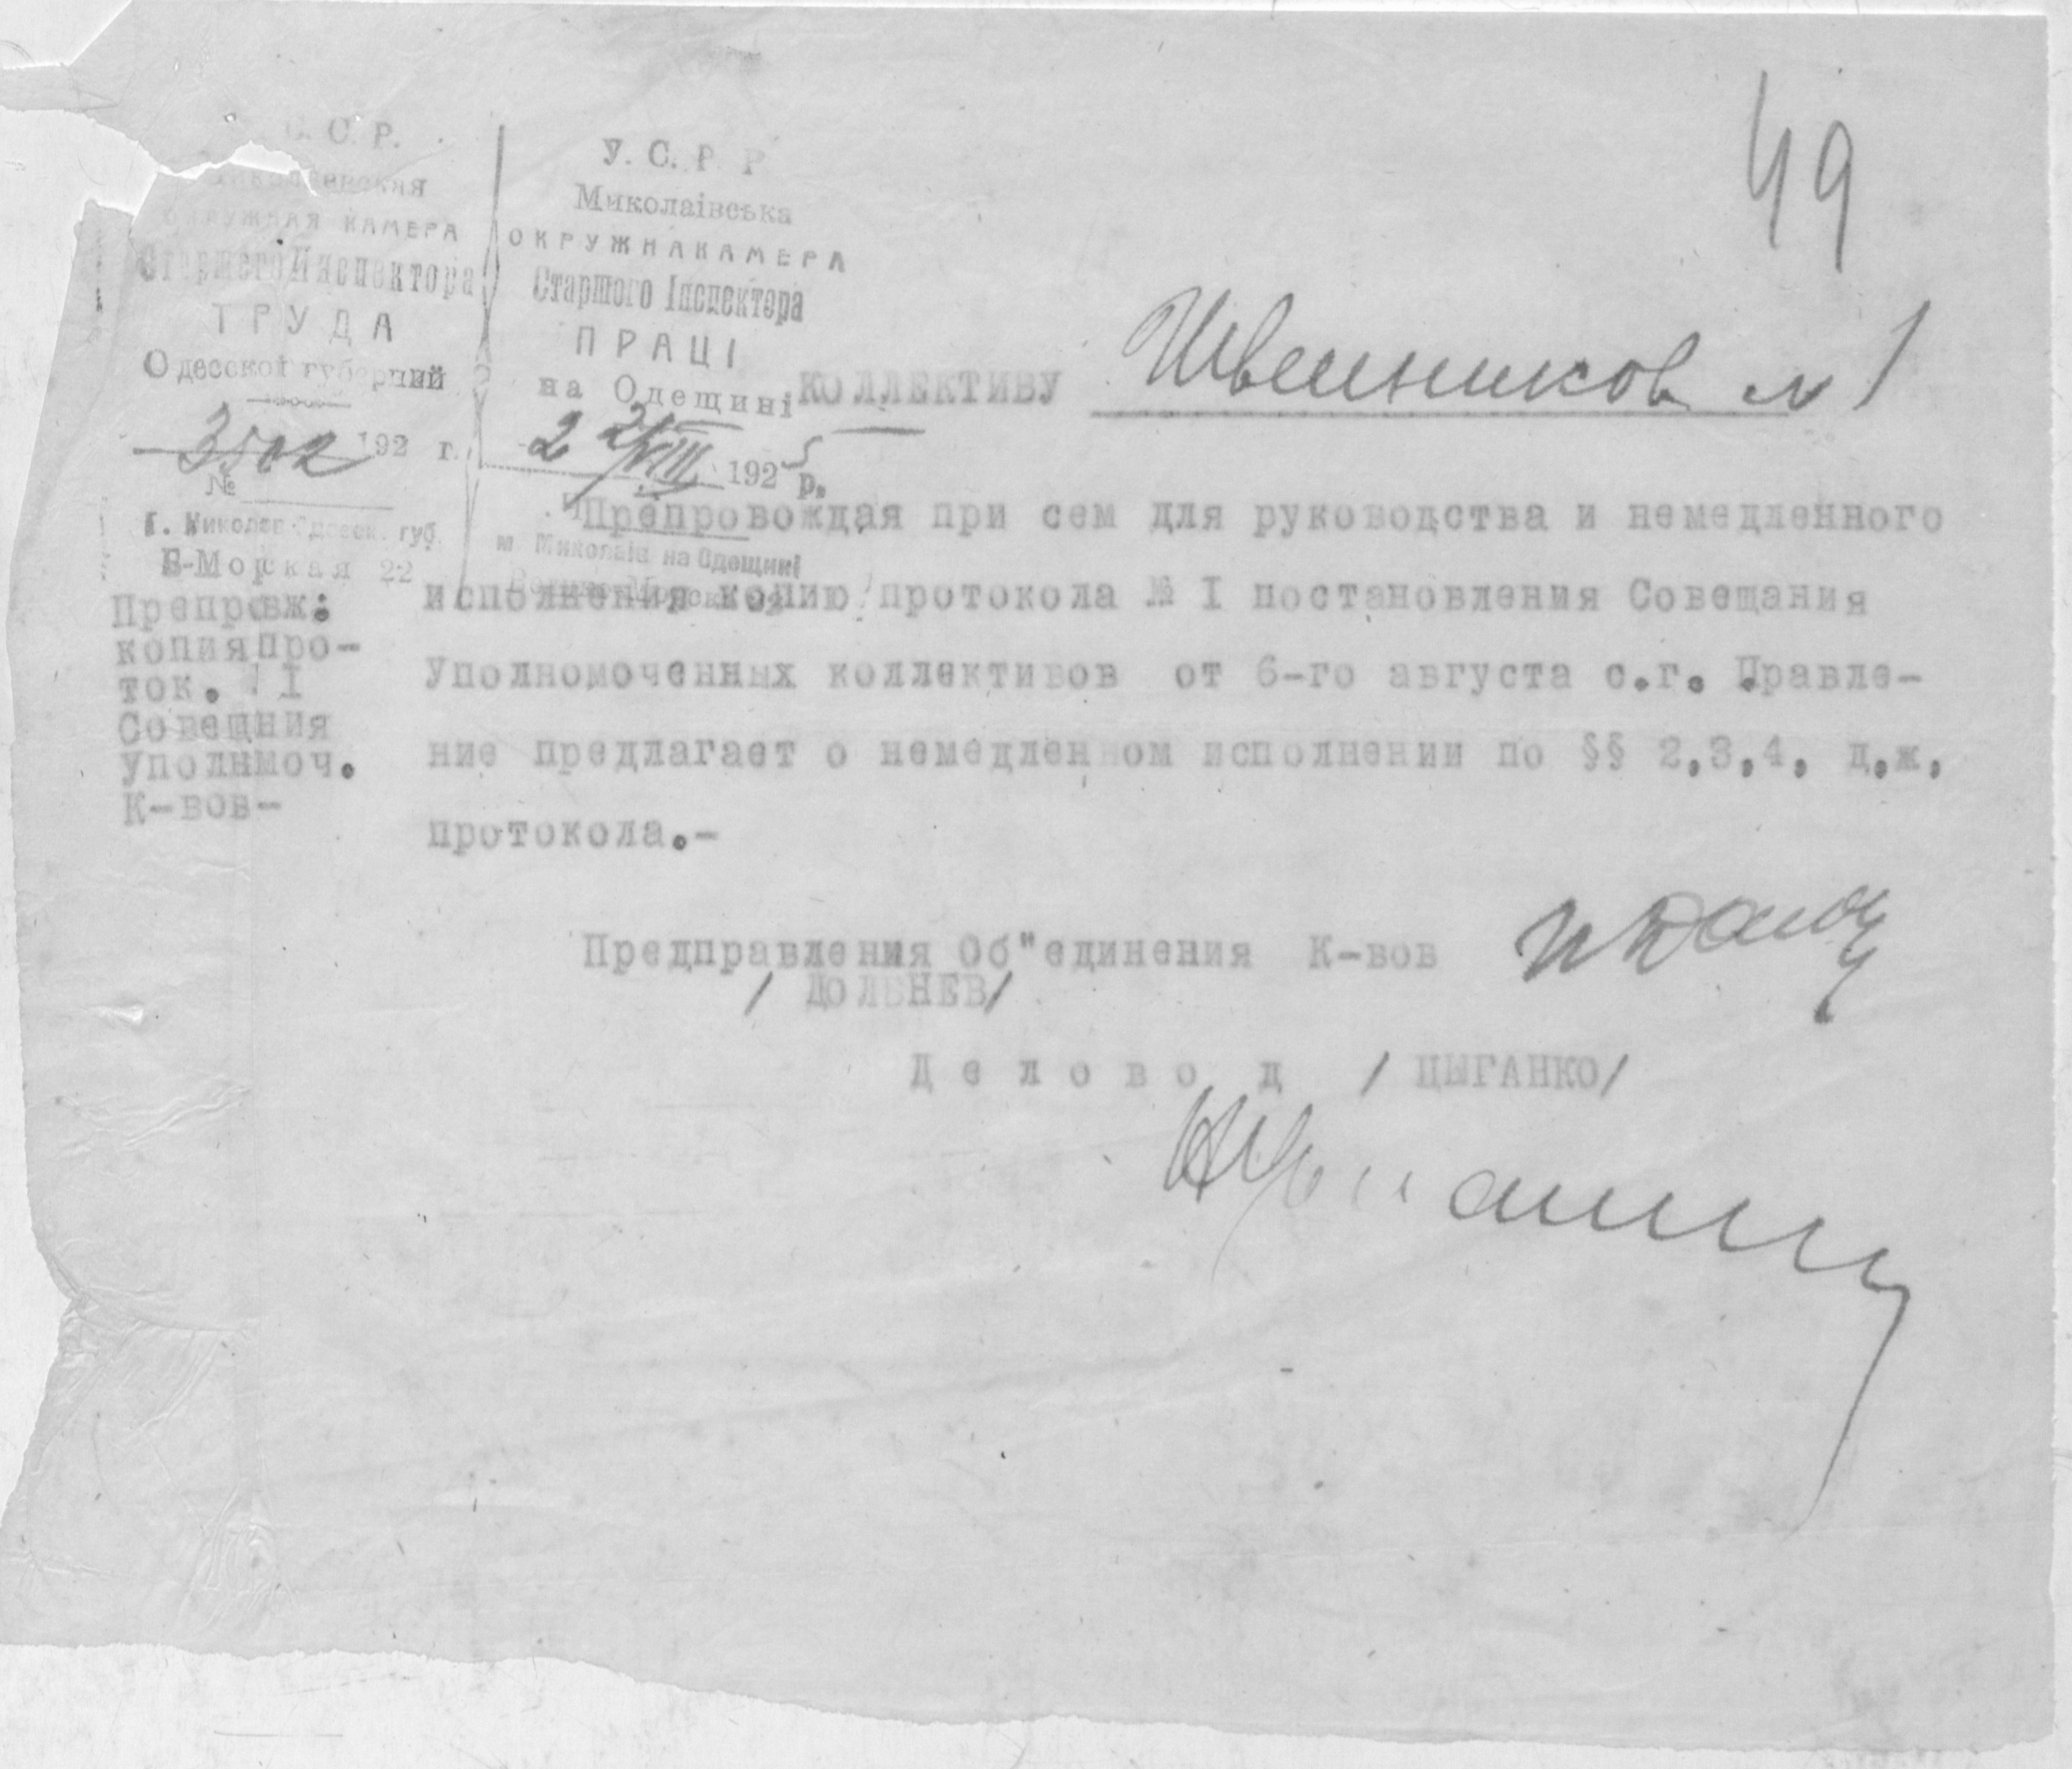 49
С. Р.
ОКРУЖНАЯ КАМЕРА
Старшего Инспектора
ТРУДА
Одесской губерний
3502 192 г.
№
г. Николаев Одесск. губ.
Б-Морская 22
У. С. Р Р
Миколаівська
ОКРУЖНАКАМЕРА
Старшого Інспектора
ПРАЦІ
на Одещині
192 5 р.
м Миколаів на Одещині
КОЛЛЕКТИВУ Швейников № 1
Препровж:
копияпро-
ток. I
Совещния
уполнмоч.
К-вов-
Препровождая при сем для руководства и немедленного
исполнения копию протокола № I постановления Совещания
Уполномоченных коллективов от 6-го августа с.г. Правле-
ние предлагает о немедленном исполнении по §§ 2,3,4, д.ж.
протокола.-
Предправления Об"единения К-вов
/ ДОЛЬНЕВ/
Деловод / ЦЫГАНКО/